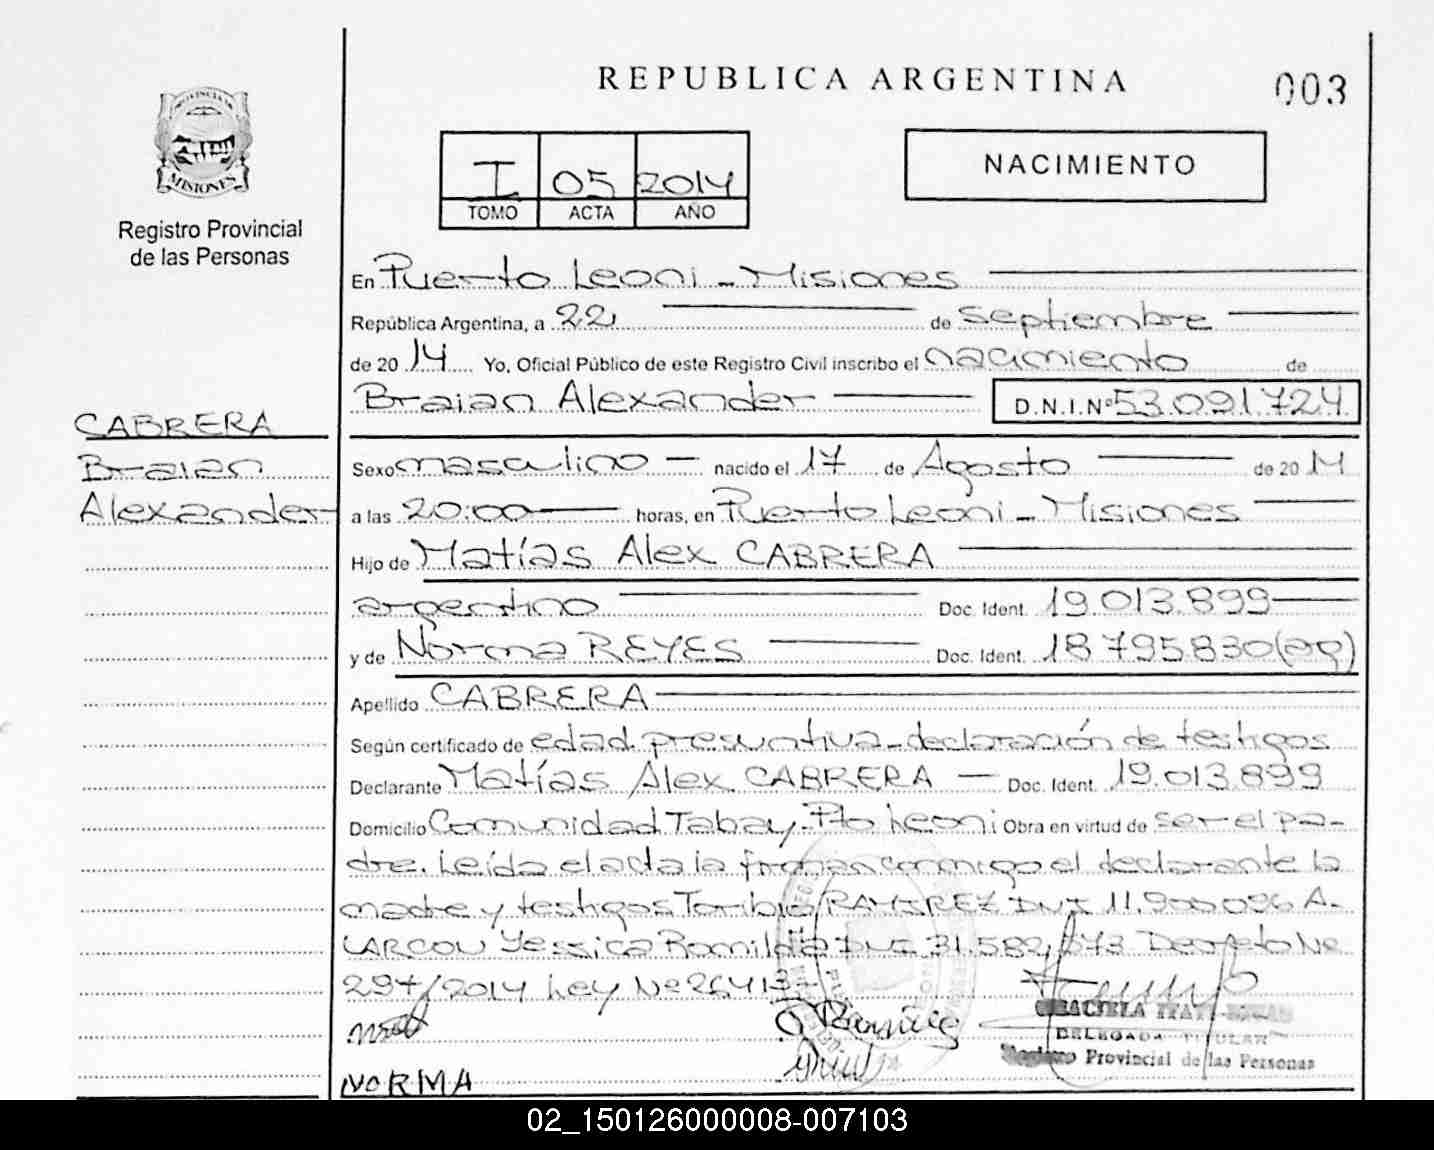 REPUBLICA ARGENTINA
003
PROVINCIA DE
MISIONES
Registro Provincial
de las Personas
I 05 2014
TOMO ACTA AÑO
NACIMIENTO
En Puerto Leoni - Misiones
República Argentina, a 22 de septiembre
de 2014 Yo, Oficial Público de este Registro Civil inscribo el nacimiento de
Braian Alexander D.N.I.Nº 53.091.724
CABRERA
Braian
Alexander
Sexo masculino nacido el 17 de Agosto de 2014
a las 20:00 horas, en Puerto Leoni - Misiones
Hijo de Matías Alex CABRERA
argentino Doc. Ident. 19.013.899
y de Norma REYES Doc. Ident. 18.795.830 (ag)
Apellido CABRERA
Según certificado de edad presuntiva - declaración de testigos
Declarante Matías Alex CABRERA Doc. Ident. 19.013.899
Domicilio Comunidad Tabay - Pto Leoni Obra en virtud de ser el pa-
dre. Leída el acta la firman conmigo el declarante la
madre y testigos Toribio RAMIREZ DNI 11.900.096 A-
LARCON Yessica Romilda DNI 31.582. Decreto Nº
297/2014 Ley Nº 26.413-
NORMA
DELEGADA TITULAR
Provincial de las Personas
02_150126000008-007103